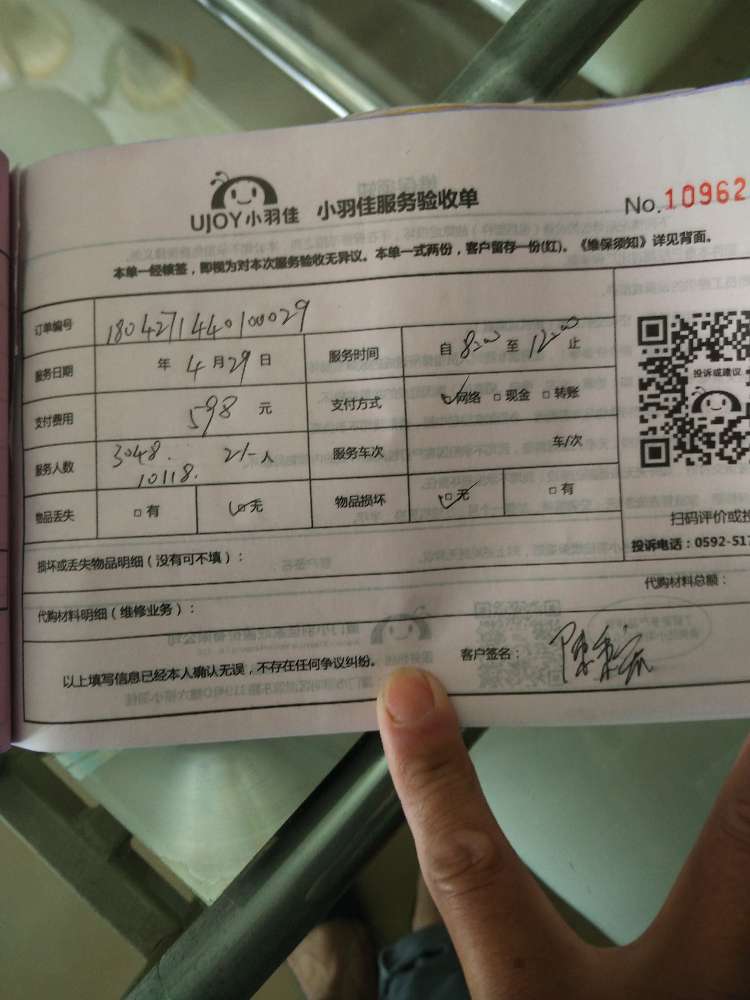 UJOY小羽佳 小羽佳服务验收单 No.10962
本单一经核签，即视为对本次服务验收无异议。本单一式两份，客户留存一份(红)。《维保须知》详见背面。
订单编号 1804271440100029
服务日期 年 4 月 29 日 服务时间 自 8:00 至 12:00 止
投诉或建议
支付费用 598 元 支付方式 ☑网络 □现金 □转账
服务人数 3048. 10118. 2/- 人 服务车次 车/次
物品丢失 □有 ☑无 物品损坏 ☑无 □有
扫码评价或投
损坏或丢失物品明细（没有可不填）： 投诉电话：0592-517
代购材料明细（维修业务）： 代购材料总额：
以上填写信息已经本人确认无误，不存在任何争议纠纷。 客户签名：